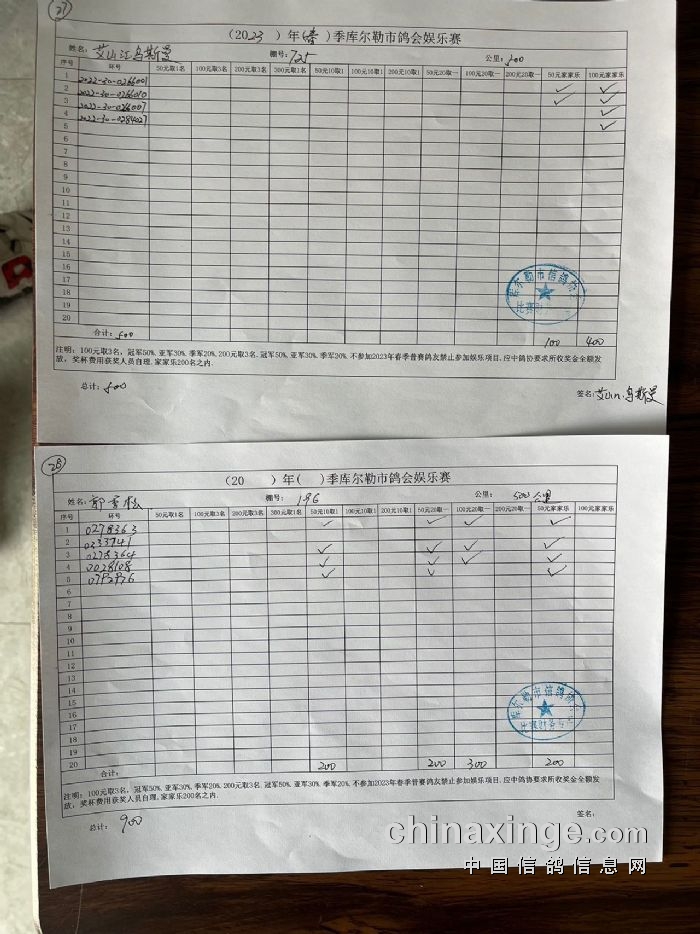 27
（2023）年（春）季库尔勒市鸽会娱乐赛
姓名：艾山江乌斯曼 棚号：725 公里：500
序号 环号 50元取1名 100元取3名 200元取3名 300元取1名 50元10取1 100元10取1 200元10取1 50元20取一 100元20取一 200元20取一 50元家家乐 100元家家乐
1 2022-30-0266001
2 2022-30-0266010 ✓ ✓
3 2022-30-0266007 ✓ ✓
4 2022-30-0284027 ✓
5 ✓
6
7
8
9
10
11
12
13
14
15
16
17
18
19
20
合计：500 100 400
库尔勒市信鸽协
比赛财
注明：100元取3名，冠军50%，亚军30%，季军20%，200元取3名，冠军50%，亚军30%，季军20%，不参加2023年春季普赛鸽友禁止参加娱乐项目，应中鸽协要求所收奖金全额发
放，奖杯费用获奖人员自理，家家乐200名之内.
总计：500 签名：艾山江.乌斯曼
28
（20 ）年（ ）季库尔勒市鸽会娱乐赛
姓名：郭雪松 棚号：196 公里：500公里
序号 环号 50元取1名 100元取3名 200元取3名 300元取1名 50元10取1 100元10取1 200元10取1 50元20取一 100元20取一 200元20取一 50元家家乐 100元家家乐
1 0278363 ✓ ✓ ✓ ✓
2 0333741
3 0278364 ✓ ✓ ✓ ✓
4 0028108 ✓ ✓ ✓ ✓
5 ✓ ✓ ✓
6
7
8
9
10
11
12
13
14
15
16
17
18
19
20
合计： 200 200 300 200
库尔勒市信鸽协
比赛财务专
注明：100元取3名，冠军50%，亚军30%，季军20%，200元取3名，冠军50%，亚军30%，季军20%，不参加2023年春季普赛鸽友禁止参加娱乐项目，应中鸽协要求所收奖金全额发
放，奖杯费用获奖人员自理，家家乐200名之内.
总计：900 签名：
chinaxinge.com
中国信鸽信息网